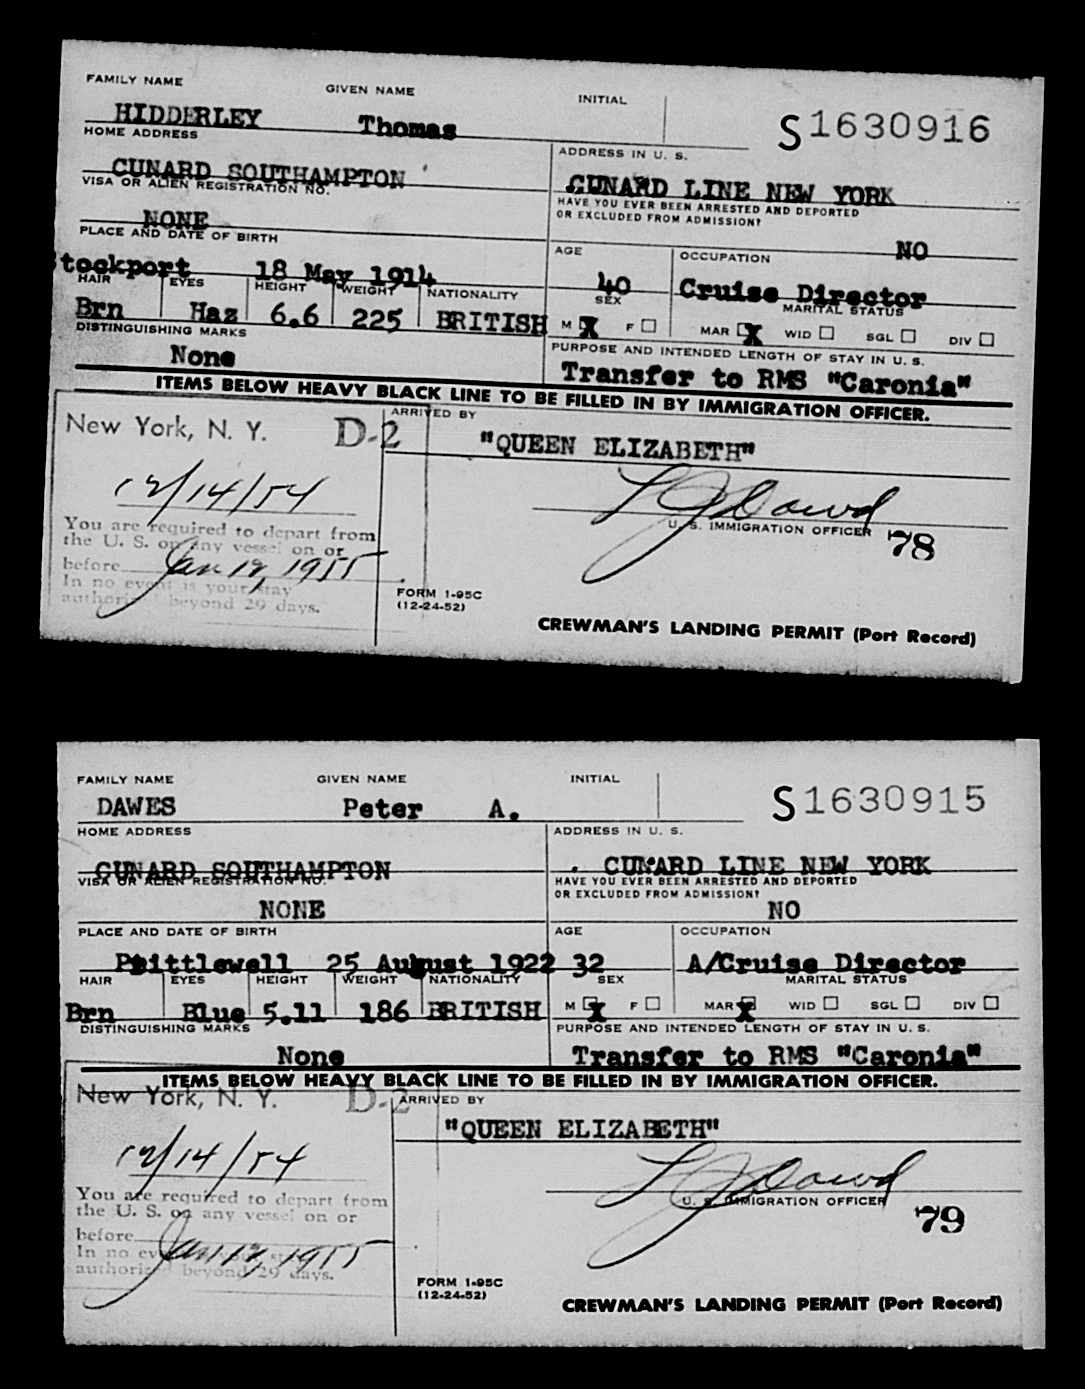 FAMILY NAME GIVEN NAME INITIAL
HIDDERLEY Thomas S1630916
HOME ADDRESS ADDRESS IN U. S.
CUNARD SOUTHAMPTON CUNARD LINE NEW YORK
VISA OR ALIEN REGISTRATION NO. HAVE YOU EVER BEEN ARRESTED AND DEPORTED
OR EXCLUDED FROM ADMISSION?
NONE NO
PLACE AND DATE OF BIRTH AGE OCCUPATION
Stockport 18 May 1914 40 Cruise Director
HAIR EYES HEIGHT WEIGHT NATIONALITY SEX MARITAL STATUS
Brn Haz 6.6 225 BRITISH M X F MAR X WID SGL DIV
DISTINGUISHING MARKS PURPOSE AND INTENDED LENGTH OF STAY IN U. S.
None Transfer to RMS "Caronia"
ITEMS BELOW HEAVY BLACK LINE TO BE FILLED IN BY IMMIGRATION OFFICER.
New York, N. Y. D-2 ARRIVED BY
"QUEEN ELIZABETH"
12/14/54 L J Dowd
You are required to depart from U. S. IMMIGRATION OFFICER
the U. S. on any vessel on or '78
before Jan 12, 1955
In no event is your stay FORM I-95C
authorized beyond 29 days. (12-24-52)
CREWMAN'S LANDING PERMIT (Port Record)
FAMILY NAME GIVEN NAME INITIAL
DAWES Peter A. S1630915
HOME ADDRESS ADDRESS IN U. S.
CUNARD SOUTHAMPTON CUNARD LINE NEW YORK
VISA OR ALIEN REGISTRATION NO. HAVE YOU EVER BEEN ARRESTED AND DEPORTED
OR EXCLUDED FROM ADMISSION?
NONE NO
PLACE AND DATE OF BIRTH AGE OCCUPATION
Prittlewell 25 August 1922 32 A/Cruise Director
HAIR EYES HEIGHT WEIGHT NATIONALITY SEX MARITAL STATUS
Brn Blue 5.11 186 BRITISH M X F MAR X WID SGL DIV
DISTINGUISHING MARKS PURPOSE AND INTENDED LENGTH OF STAY IN U. S.
None Transfer to RMS "Caronia"
ITEMS BELOW HEAVY BLACK LINE TO BE FILLED IN BY IMMIGRATION OFFICER.
New York, N. Y. D-2 ARRIVED BY
"QUEEN ELIZABETH"
12/14/54 L J Dowd
You are required to depart from U. S. IMMIGRATION OFFICER
the U. S. on any vessel on or '79
before Jan 12, 1955
In no event is your stay FORM I-95C
authorized beyond 29 days. (12-24-52)
CREWMAN'S LANDING PERMIT (Port Record)